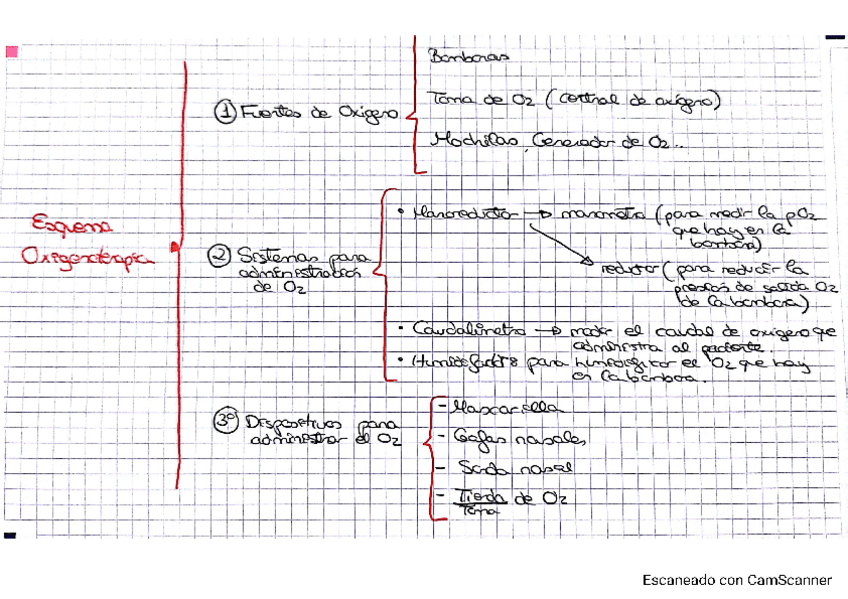 Bombonas
① Fuentes de Oxigeno
Toma de O2 (central de oxígeno)
Mochilas, Generador de O2...
Esquema
Oxigenoterapia
② Sistemas para
administración
de O2
• Manoreductor → manometro (para medir la pO2
que hay en la
bombona)
reductor (para reducir la
presión de salida O2
de la bombona)
• Caudalimetro → medir el caudal de oxigeno que
administra al paciente.
• Humidificador para humidificar el O2 que hay
en la bombona.
③º Dispositivos para
administrar el O2
- Mascarilla
- Gafas nasales
- Sonda nasal
- Tienda de O2
Toma
Escaneado con CamScanner